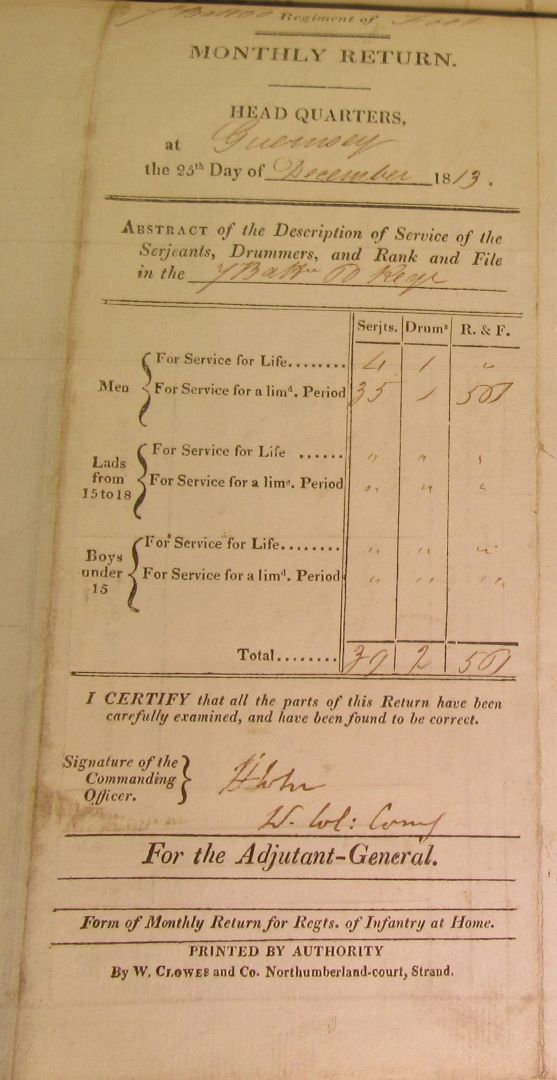 Regiment of Foot
MONTHLY RETURN.
HEAD QUARTERS,
at Guernsey
the 25th Day of December 1813.
ABSTRACT of the Description of Service of the
Serjeants, Drummers, and Rank and File
in the 7 Battn 60 Regt
Serjts. Drums R. & F.
Men { For Service for Life........ 4 1 "
For Service for a limd. Period 35 1 501
Lads from 15 to 18 { For Service for Life ...... " " "
For Service for a limd. Period " " "
Boys under 15 { For Service for Life........ " " "
For Service for a limd. Period " " "
Total........ 39 2 501
I CERTIFY that all the parts of this Return have been
carefully examined, and have been found to be correct.
Signature of the
Commanding
Officer.
Col: Comg
For the Adjutant-General.
Form of Monthly Return for Regts. of Infantry at Home.
PRINTED BY AUTHORITY
By W. CLOWES and Co. Northumberland-court, Strand.